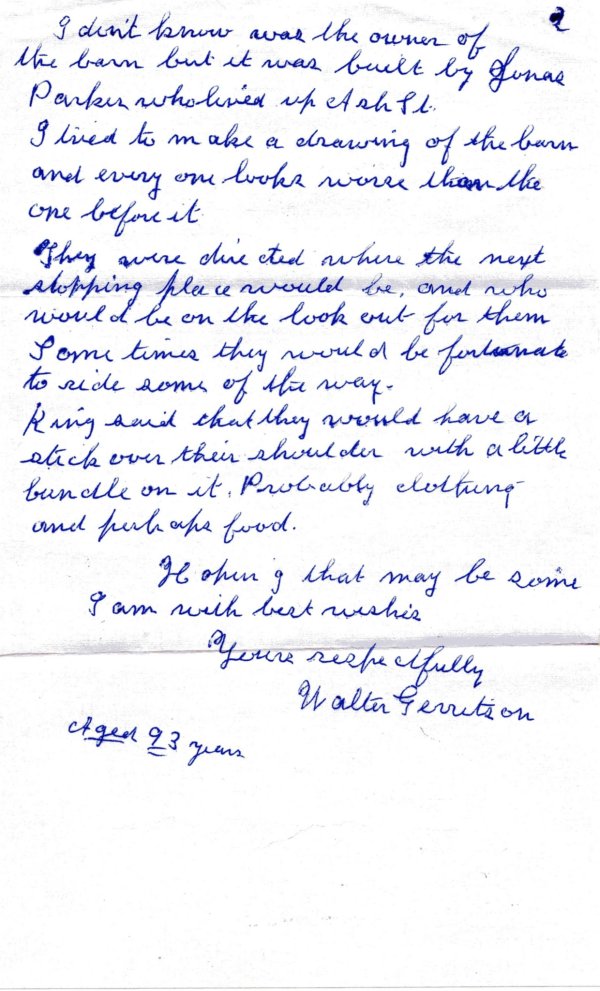 2
I don't know was the owner of
the barn but it was built by Jonas
Parker who lived up Ash St.
I tried to make a drawing of the barn
and every one looks worse than the
one before it
They were directed where the next
stopping place would be, and who
would be on the look out for them
Some times they would be fortunate
to ride some of the way.
King said that they would have a
stick over their shoulder with a little
bundle on it. Probably clothing
and perhaps food.
Hoping that may be some
I am with best wishes
Yours respectfully
Walter Gerritson
Aged 93 years